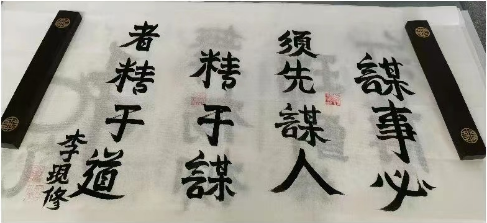 謀事必
須先謀人
精于謀
者精于道
李現修